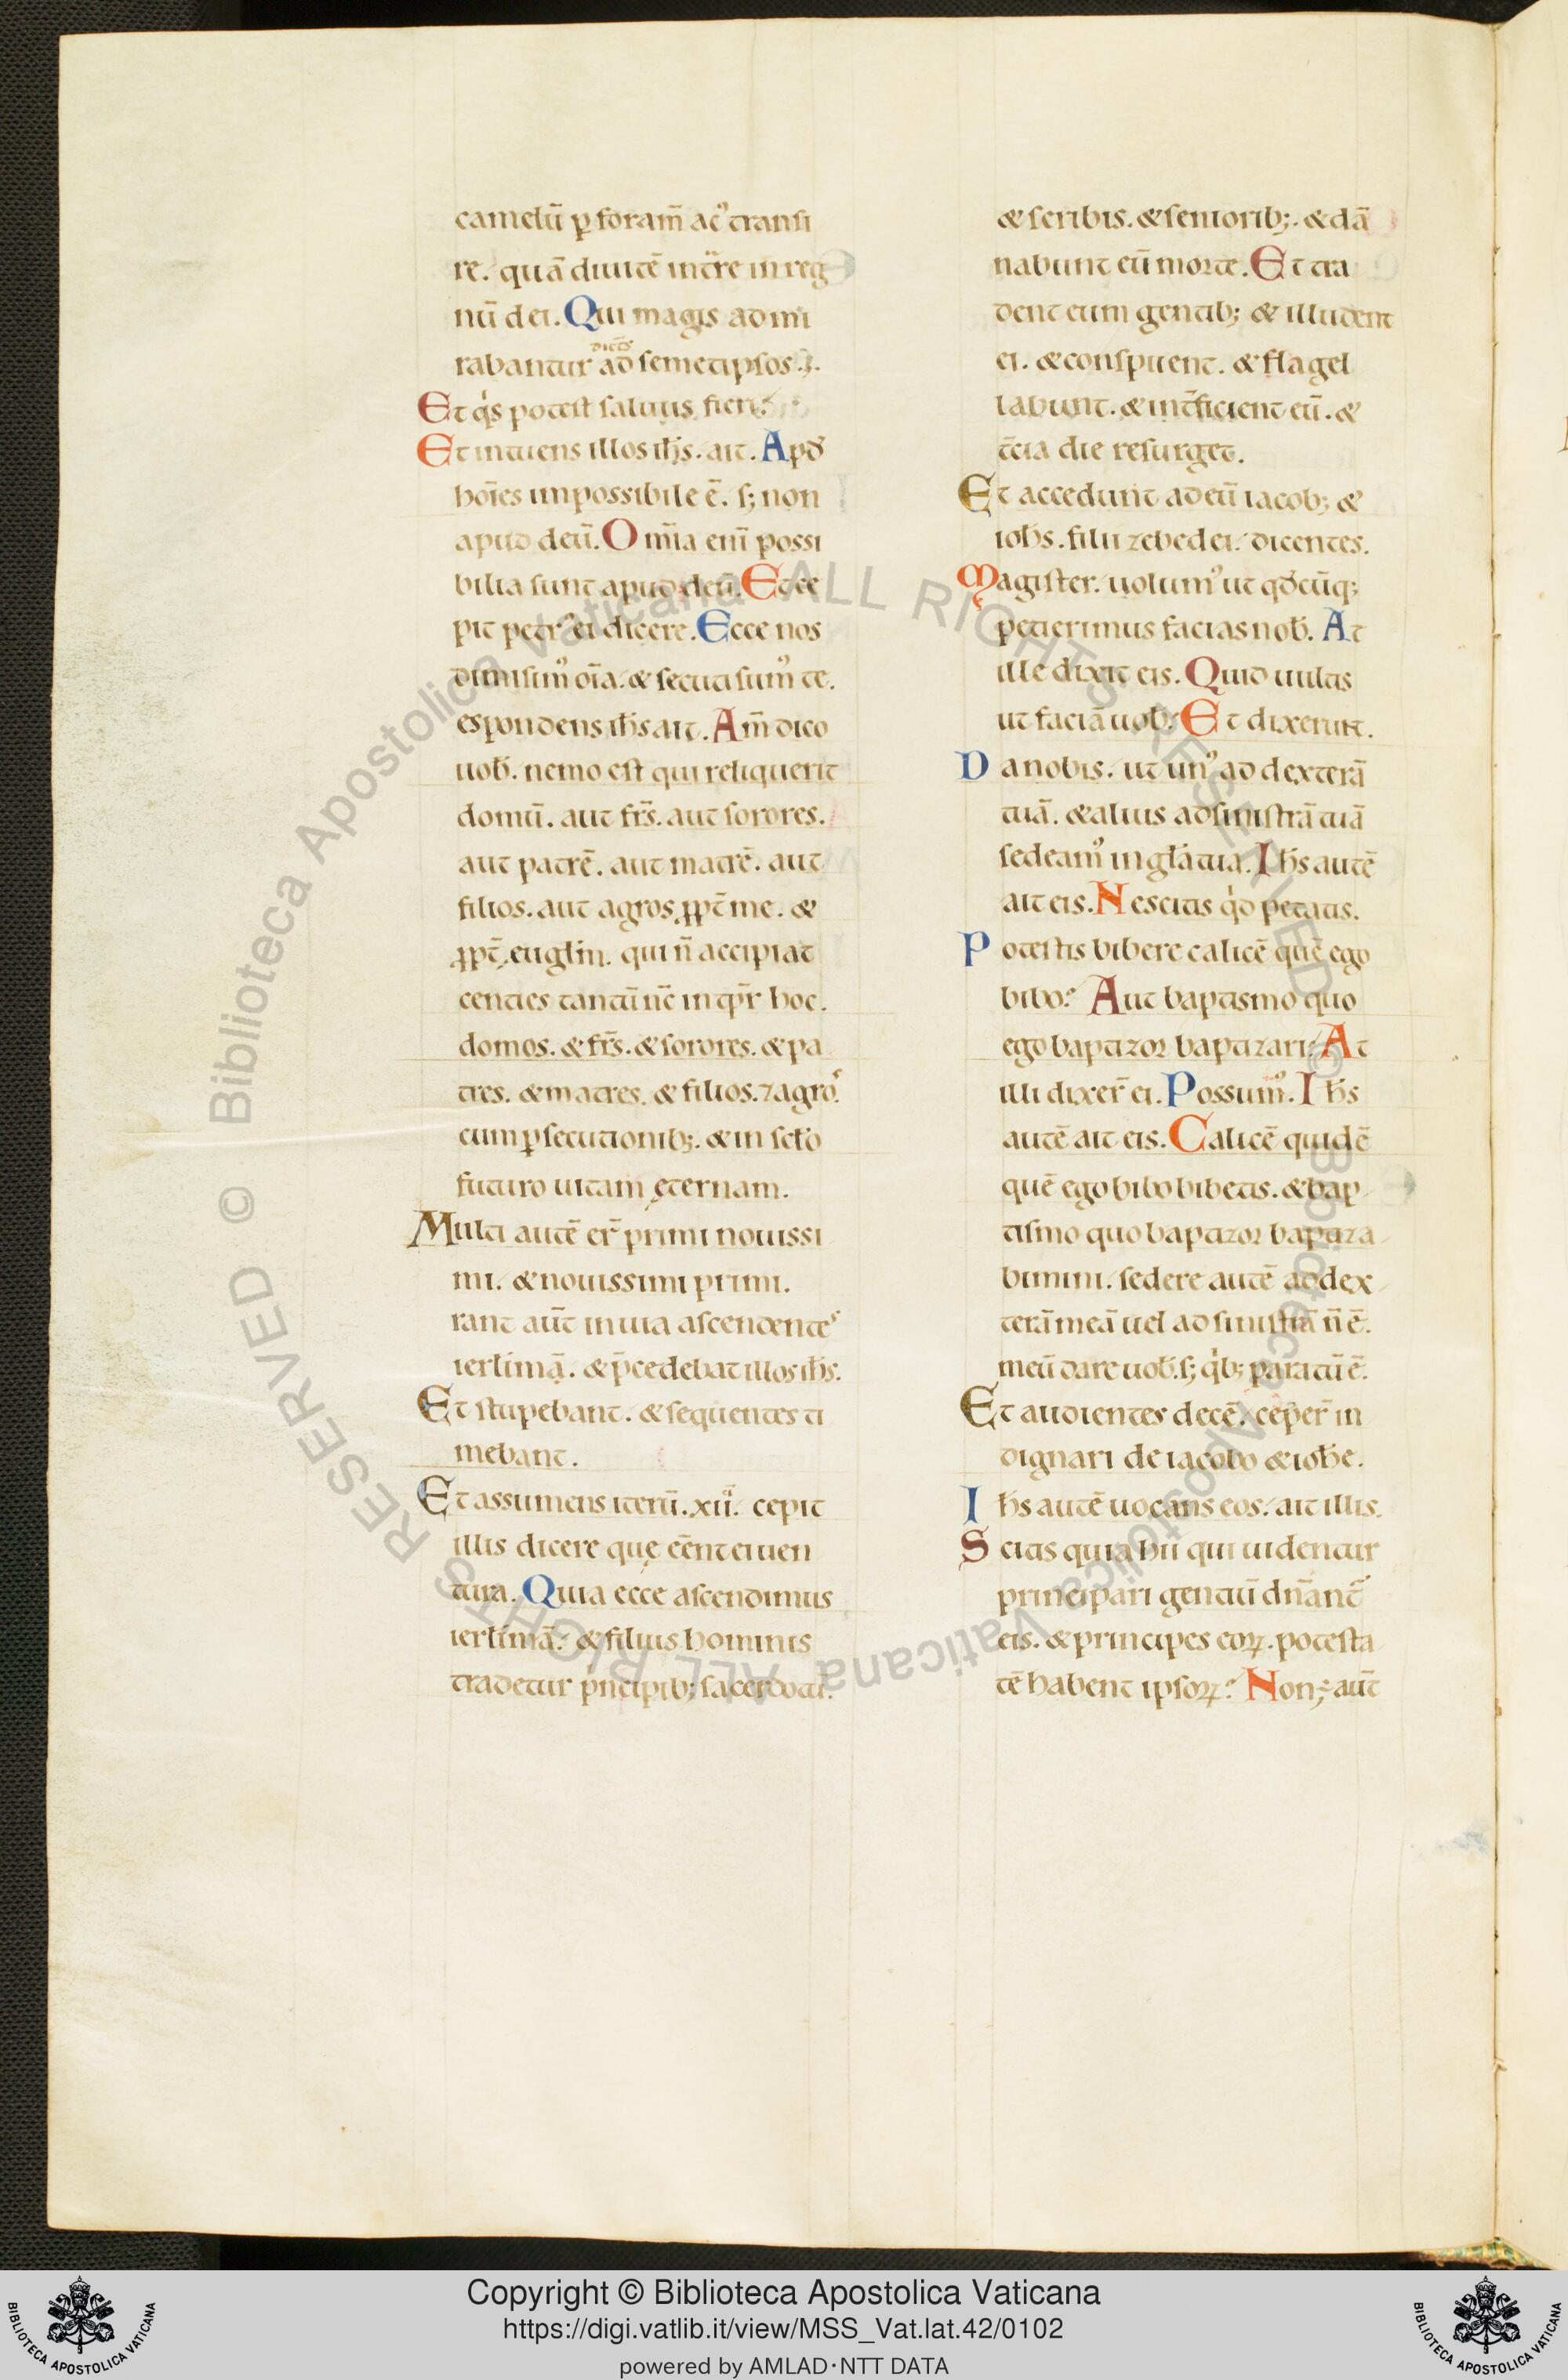 camelū ꝑ foram̄ ac᾽ transi
re. quā diuitē int̄re in reg
nū dei. Qui magis admi
rabantur ad semetipsos.
dicētes
Et q̇s potest saluus fieri?
Et intuens illos ih̄s. ait. Apd̄
hoīes impossibile ē. s; non
apud deū. Om̄ia eni᷆ possi
bilia sunt apud deū. Et ce
pit petr᾽ ei dicere. Ecce nos
dimisim᾽ oīa. & secuti sum᾽ te.
espondens ih̄s ait. Am̄ dico
uob̄. nemo est qui reliquerit
domū. aut frs̄. aut sorores.
aut patrē. aut matrē. aut
filios. aut agros ꝓpt̄ me. &
ꝓpt̄ euglīn. qui n̄ accipiat
centies tantū nc̄ in tp̄r hoc.
domos. & frs̄. & sorores. & pa
tres. & matres. & filios. ⁊ agro᾽.
cum ꝑsecutionib;. & in sc̄lo
futuro uitam ęternam.
Multi autē er̄ primi nouissi
mi. & nouissimi primi.
rant aūt in uia ascendente᾽
ierłimā. & p̄cedebat illos ih̄s.
Et stupebant. & sequentes ti
mebant.
Et assumens iterū. xii. cepit
illis dicere quę eēnt ei uen
tura. Quia ecce ascendimus
ierłimā. & filius hominis
tradetur p̍ncipib; sacerdotū.
& scribis. & seniorib;. & dā
nabunt eū morte. Et tra
dent eum gentib; & illudent
ei. & conspuent. & flagel
labunt. & int̄ficient eū. &
t̄cia die resurget.
Et accedunt ad eū iacob; &
ioh̄s. filii zebedei. dicentes.
Magister. uolum᾽ ut qd̄cūq;
petierimus facias nob̄. At
ille dixit eis. Quid uultis
ut faciā uob̄? Et dixerunt.
Da nobis. ut un᾽ ad dexterā
tuā. & alius ad sinistrā tuā
sedeam᾽ in gła tua. Ih̄s autē
ait eis. Nescitis q̇d petatis.
Potestis bibere calicē quē ego
bibo? Aut baptismo quo
ego baptizor baptizari? At
illi dixer̄ ei. Possum᾽. Ih̄s
autē ait eis. Calicē quidē
quē ego bibo bibetis. & bap
tismo quo baptizor baptiza
bimini. sedere autē ad dex
terā meā uel ad sinistrā n̄ ē.
meū dare uob̄. s; q̇b; paratū ē.
Et audientes decē. ceper̄ in
dignari de iacobo & ioh̄e.
Ih̄s autē uocans eos. ait illis.
Scitis quia hii qui uidentur
principari gentiū dn̄ant᷑
eis. & principes eoꝝ. potesta
tē habent ipsoꝝ? Non; aūt
© Biblioteca Apostolica Vaticana ALL RIGHTS RESERVED © Biblioteca Apostolica Vaticana ALL RIGHTS RESERVED
Copyright © Biblioteca Apostolica Vaticana
https://digi.vatlib.it/view/MSS_Vat.lat.42/0102
powered by AMLAD·NTT DATA
BIBLIOTECA APOSTOLICA VATICANA
BIBLIOTECA APOSTOLICA VATICANA